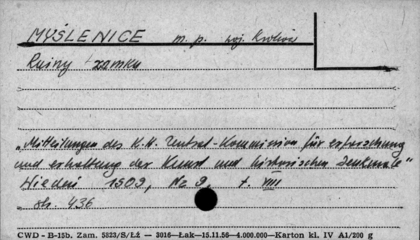 MYŚLENICE m. p. woj. Kraków
Ruiny zamku
"Mitteilungen des K.K. Zentral-Kommission für erforschung
und erhaltung der Kunst und historischen Denkmale"
Wiedeń 1909, No 9, t. VIII
str. 436
CWD - B-15b. Zam. 5823/S/Łź — 3016—Łak—15.11.56—4.000.000—Karton kl. IV A1/200 g